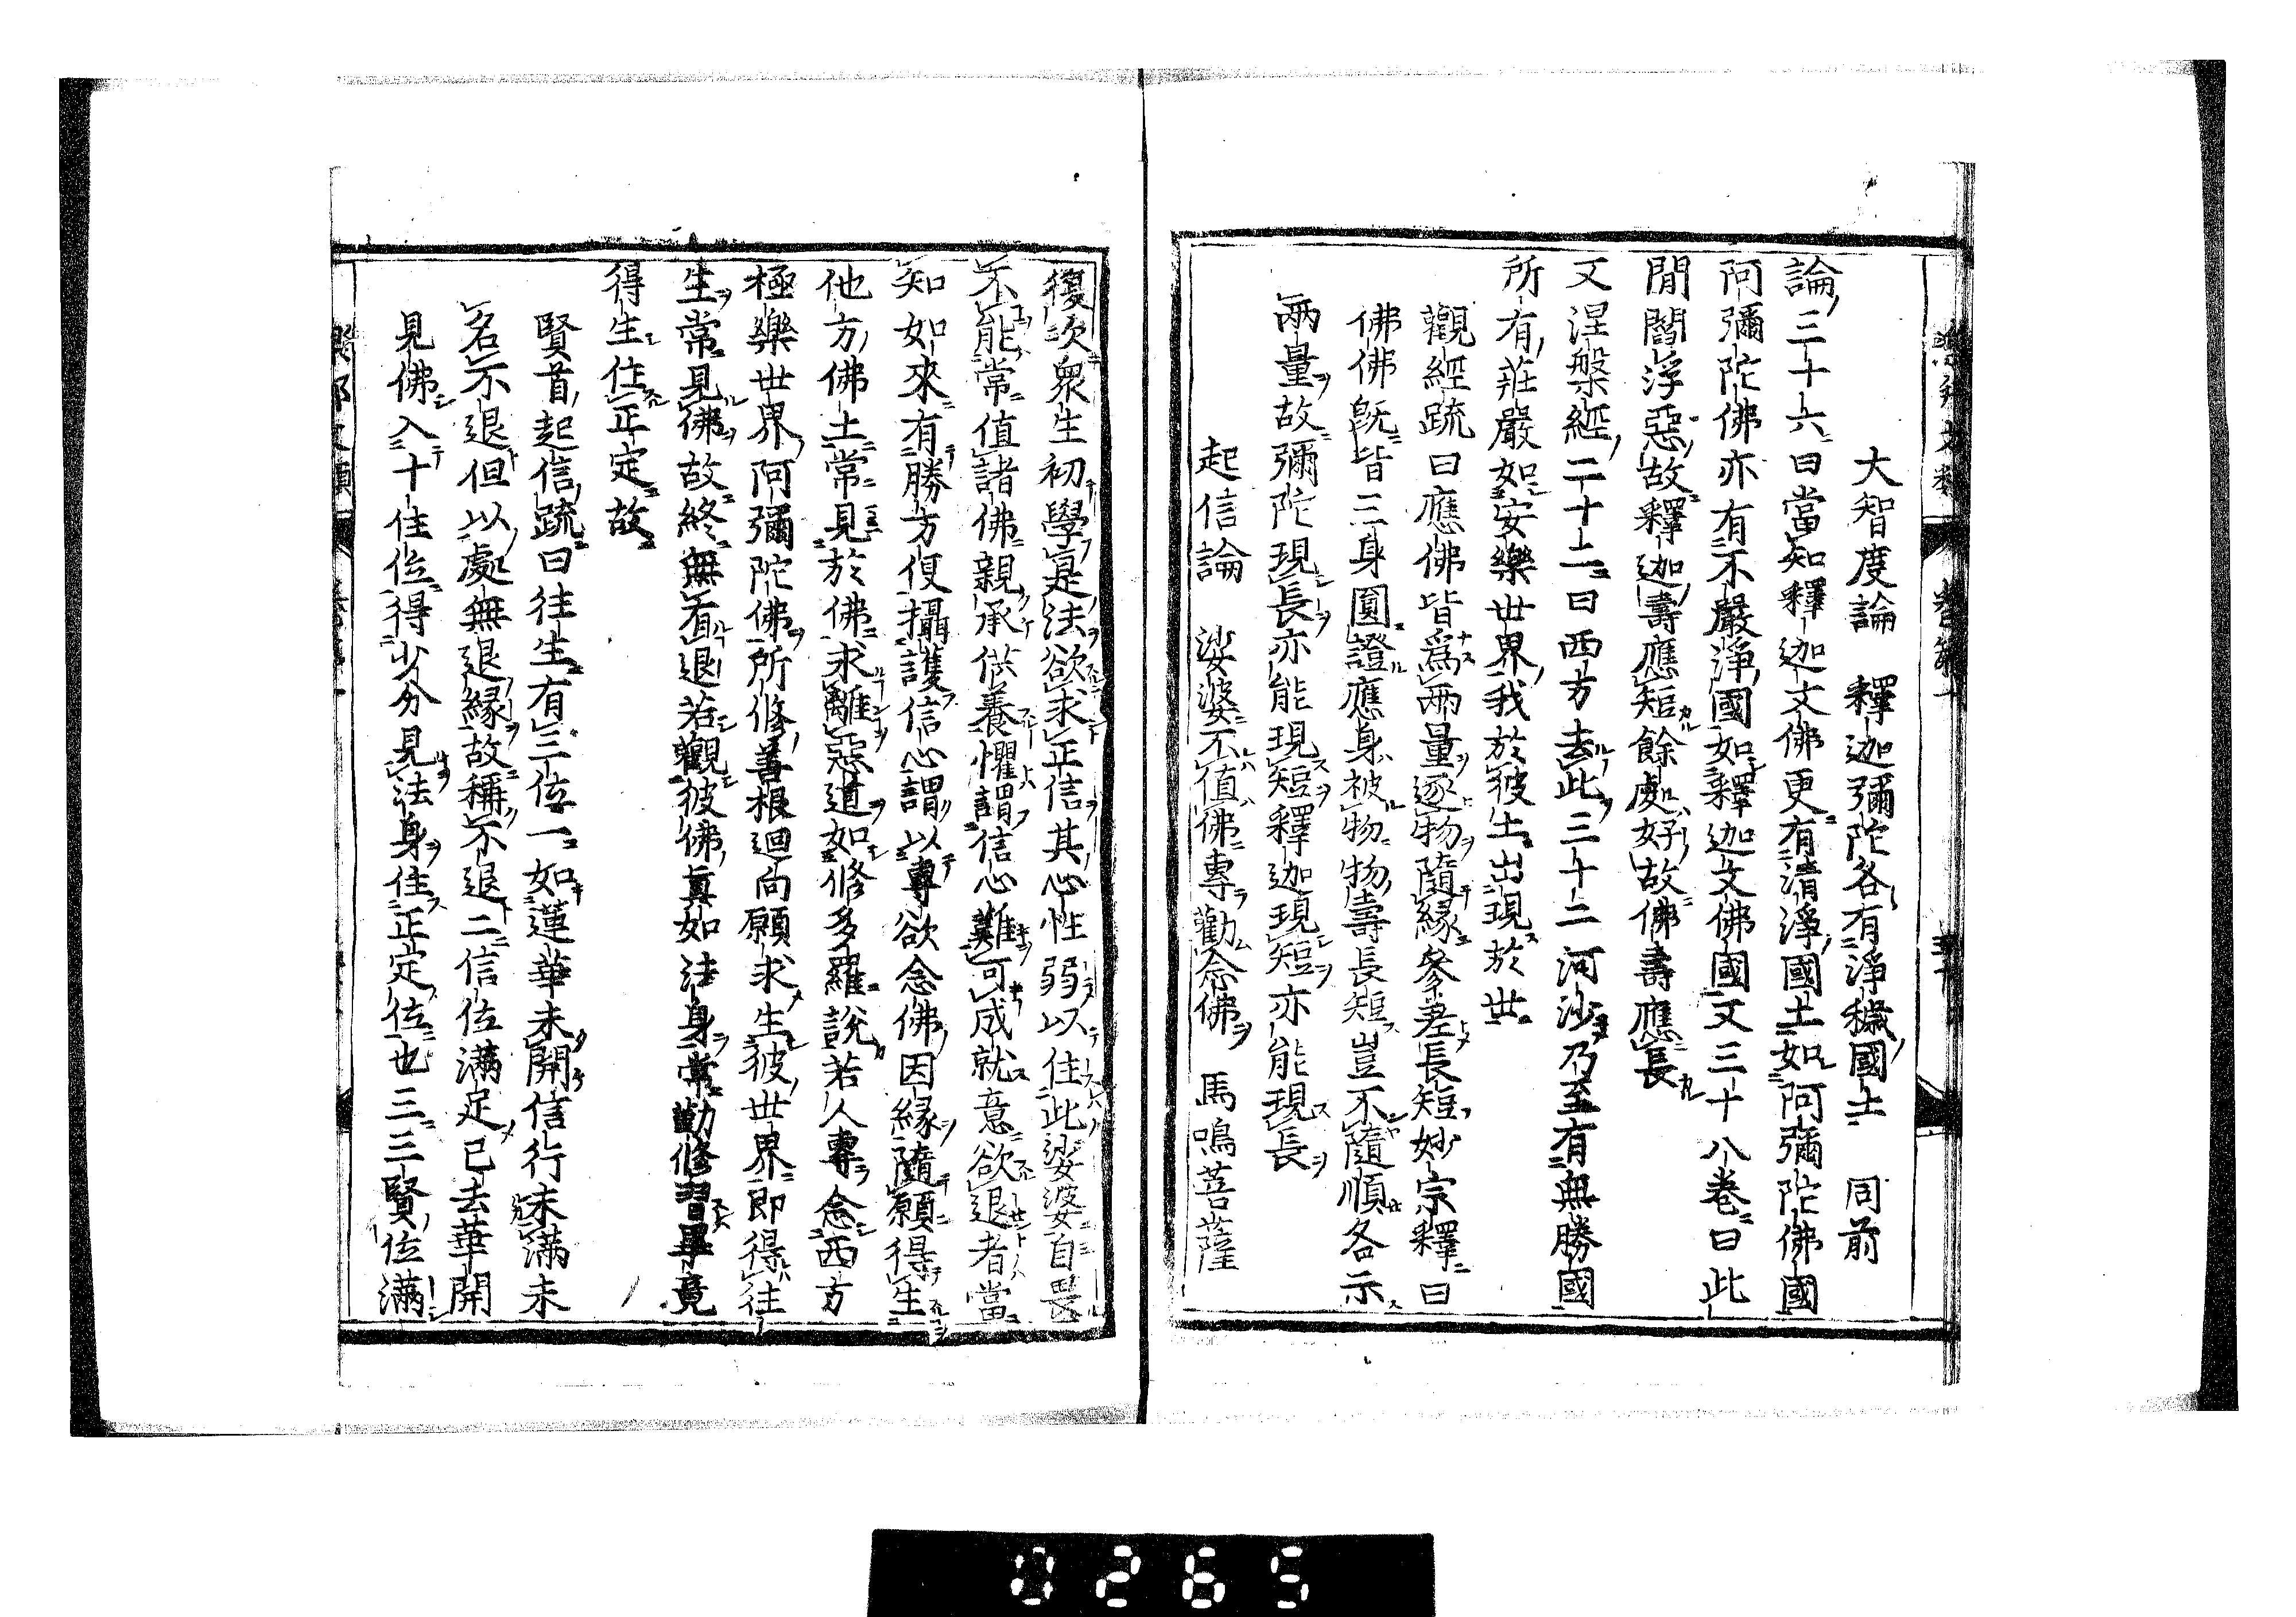 大智度論　釋迦彌陀各有淨穢國土　同前
論三十六曰當知釋迦文佛更有清淨國土如阿彌陀佛國
阿彌陀佛亦有不嚴淨國如釋迦文佛國文三十八卷曰此
間閻浮惡故釋迦壽應短餘處好故佛壽應長
又涅槃經二十二曰西方去此三十二河沙乃至有無勝國
所有莊嚴如安樂世界我於彼土出現於世
觀經疏曰應佛皆爲兩量逐物隨緣參差長短妙宗釋曰
佛佛旣皆三身圓證應身被物物壽長短豈不隨順各示
兩量故彌陀現長亦能現短釋迦現短亦能現長
起信論　娑婆不值佛專勸念佛　馬鳴菩薩
復次衆生初學是法欲求正信其心性弱以住此娑婆自畏
不能常值諸佛親承供養懼謂信心難可成就意欲退者當
知如來有勝方便攝護信心謂以專欲念佛因緣隨願得生
他方佛土常見於佛求離惡道如修多羅說若人專念西方
極樂世界阿彌陀佛所修善根迴向願求生彼世界即得往
生常見佛故終無有退若觀彼佛眞如法身常勤修習畢竟
得生住正定故
賢首起信疏曰往生有三位一如蓮華未開信行未滿未
名不退但以處無退緣故稱不退二信位滿足已去華開
見佛入十住位得少分見法身住正定位也三三賢位滿
0265